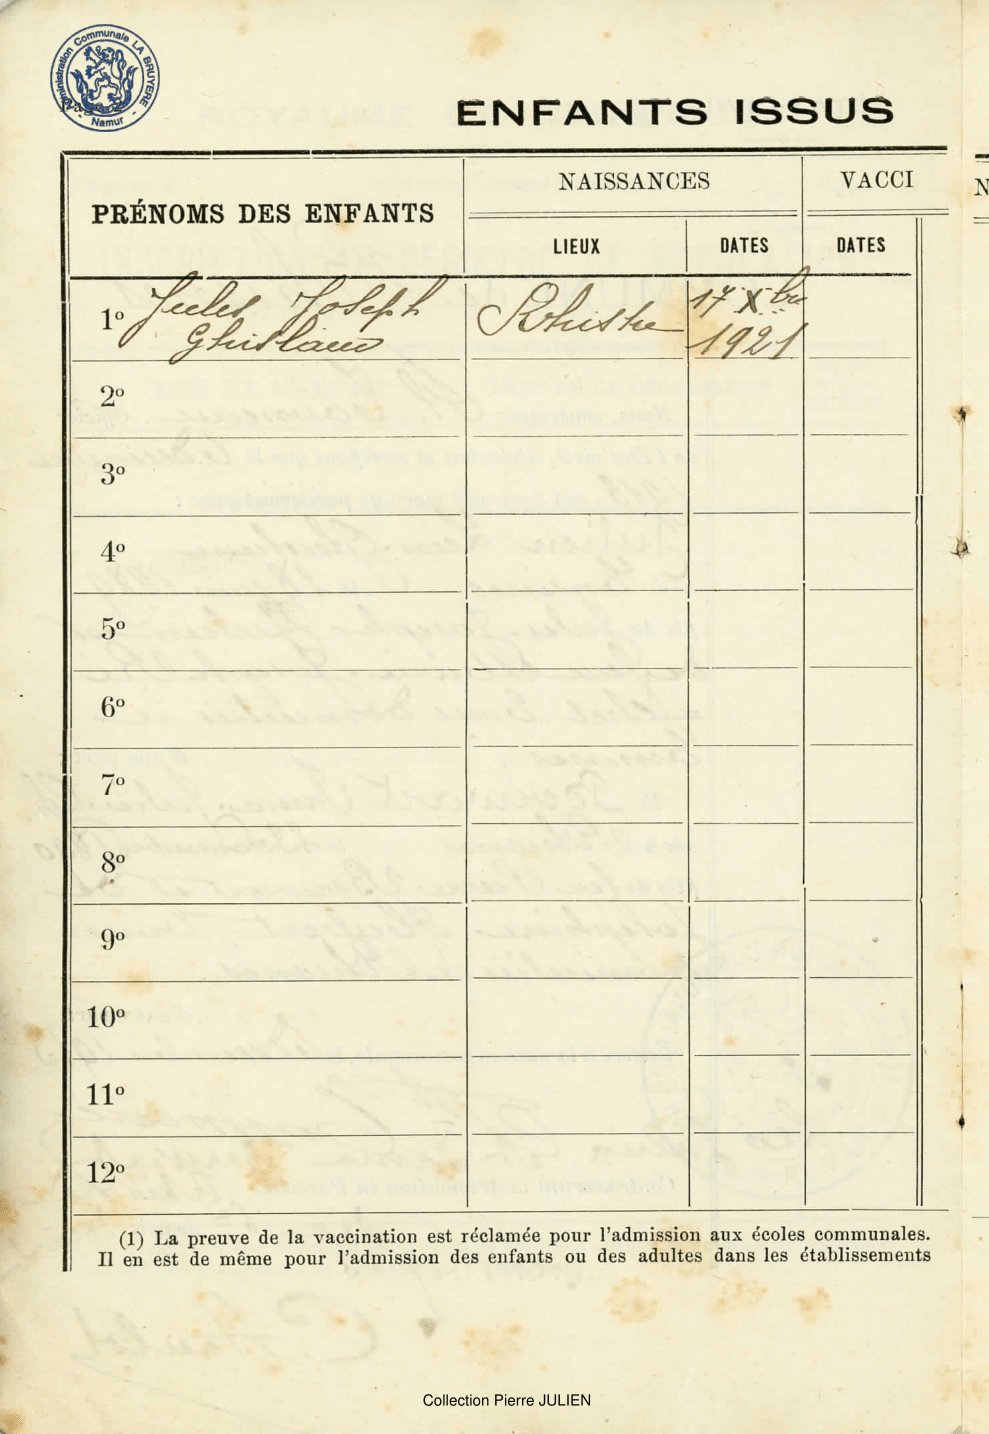 Administration Communale LA BRUYERE
- Namur -
ENFANTS ISSUS
PRÉNOMS DES ENFANTS
NAISSANCES
VACCI
N
LIEUX
DATES
DATES
1º Jules Joseph
Ghislain
Rhisne
17 Xbre
1921
2º
3º
4º
5º
6º
7º
8º
9º
10º
11º
12º
(1) La preuve de la vaccination est réclamée pour l'admission aux écoles communales.
Il en est de même pour l'admission des enfants ou des adultes dans les établissements
Collection Pierre JULIEN